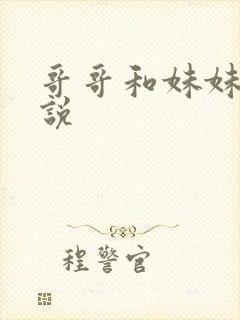 哥哥和妹妹
説
程警官